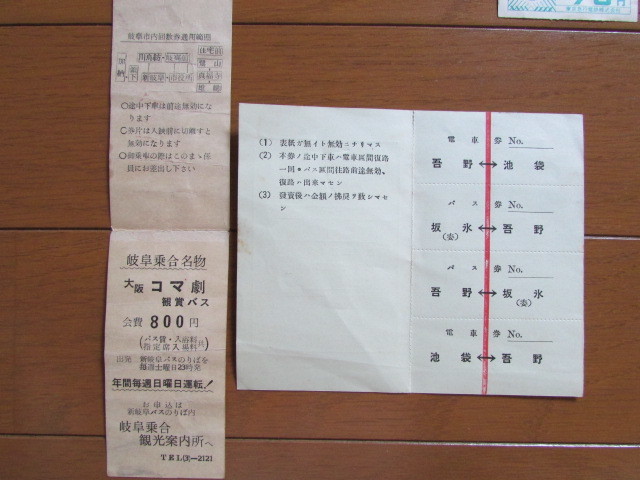 岐阜市内回数券通用範囲
○途中下車は前途無効にな
ります
○券片は入鋏前に切離すと
無効になります
○御乗車の際はこのまゝ係
員にお差出し下さい
岐阜乗合名物
大阪 コマ劇
観賞バス
会費 800円
(バス賃・入浴料
指定席入場料共)
出発 新岐阜バスのりばを
毎週土曜日23時発
年間毎週日曜日運転!
お申込は
新岐阜バスのりば内
岐阜乗合
観光案内所へ
TEL(3)-2121
(1) 表紙ガ無イト無効ニナリマス
(2) 本券ノ途中下車ハ電車区間復路
一回・バス区間往路前途無効。
復路ハ出来マセン
(3) 発売後ハ金額ノ拂戻ヲ致シマセ
ン
電車券 No.
吾野↔池袋
バス券 No.
坂氷↔吾野
(妻)
バス券 No.
吾野↔坂氷
(妻)
電車券 No.
池袋↔吾野